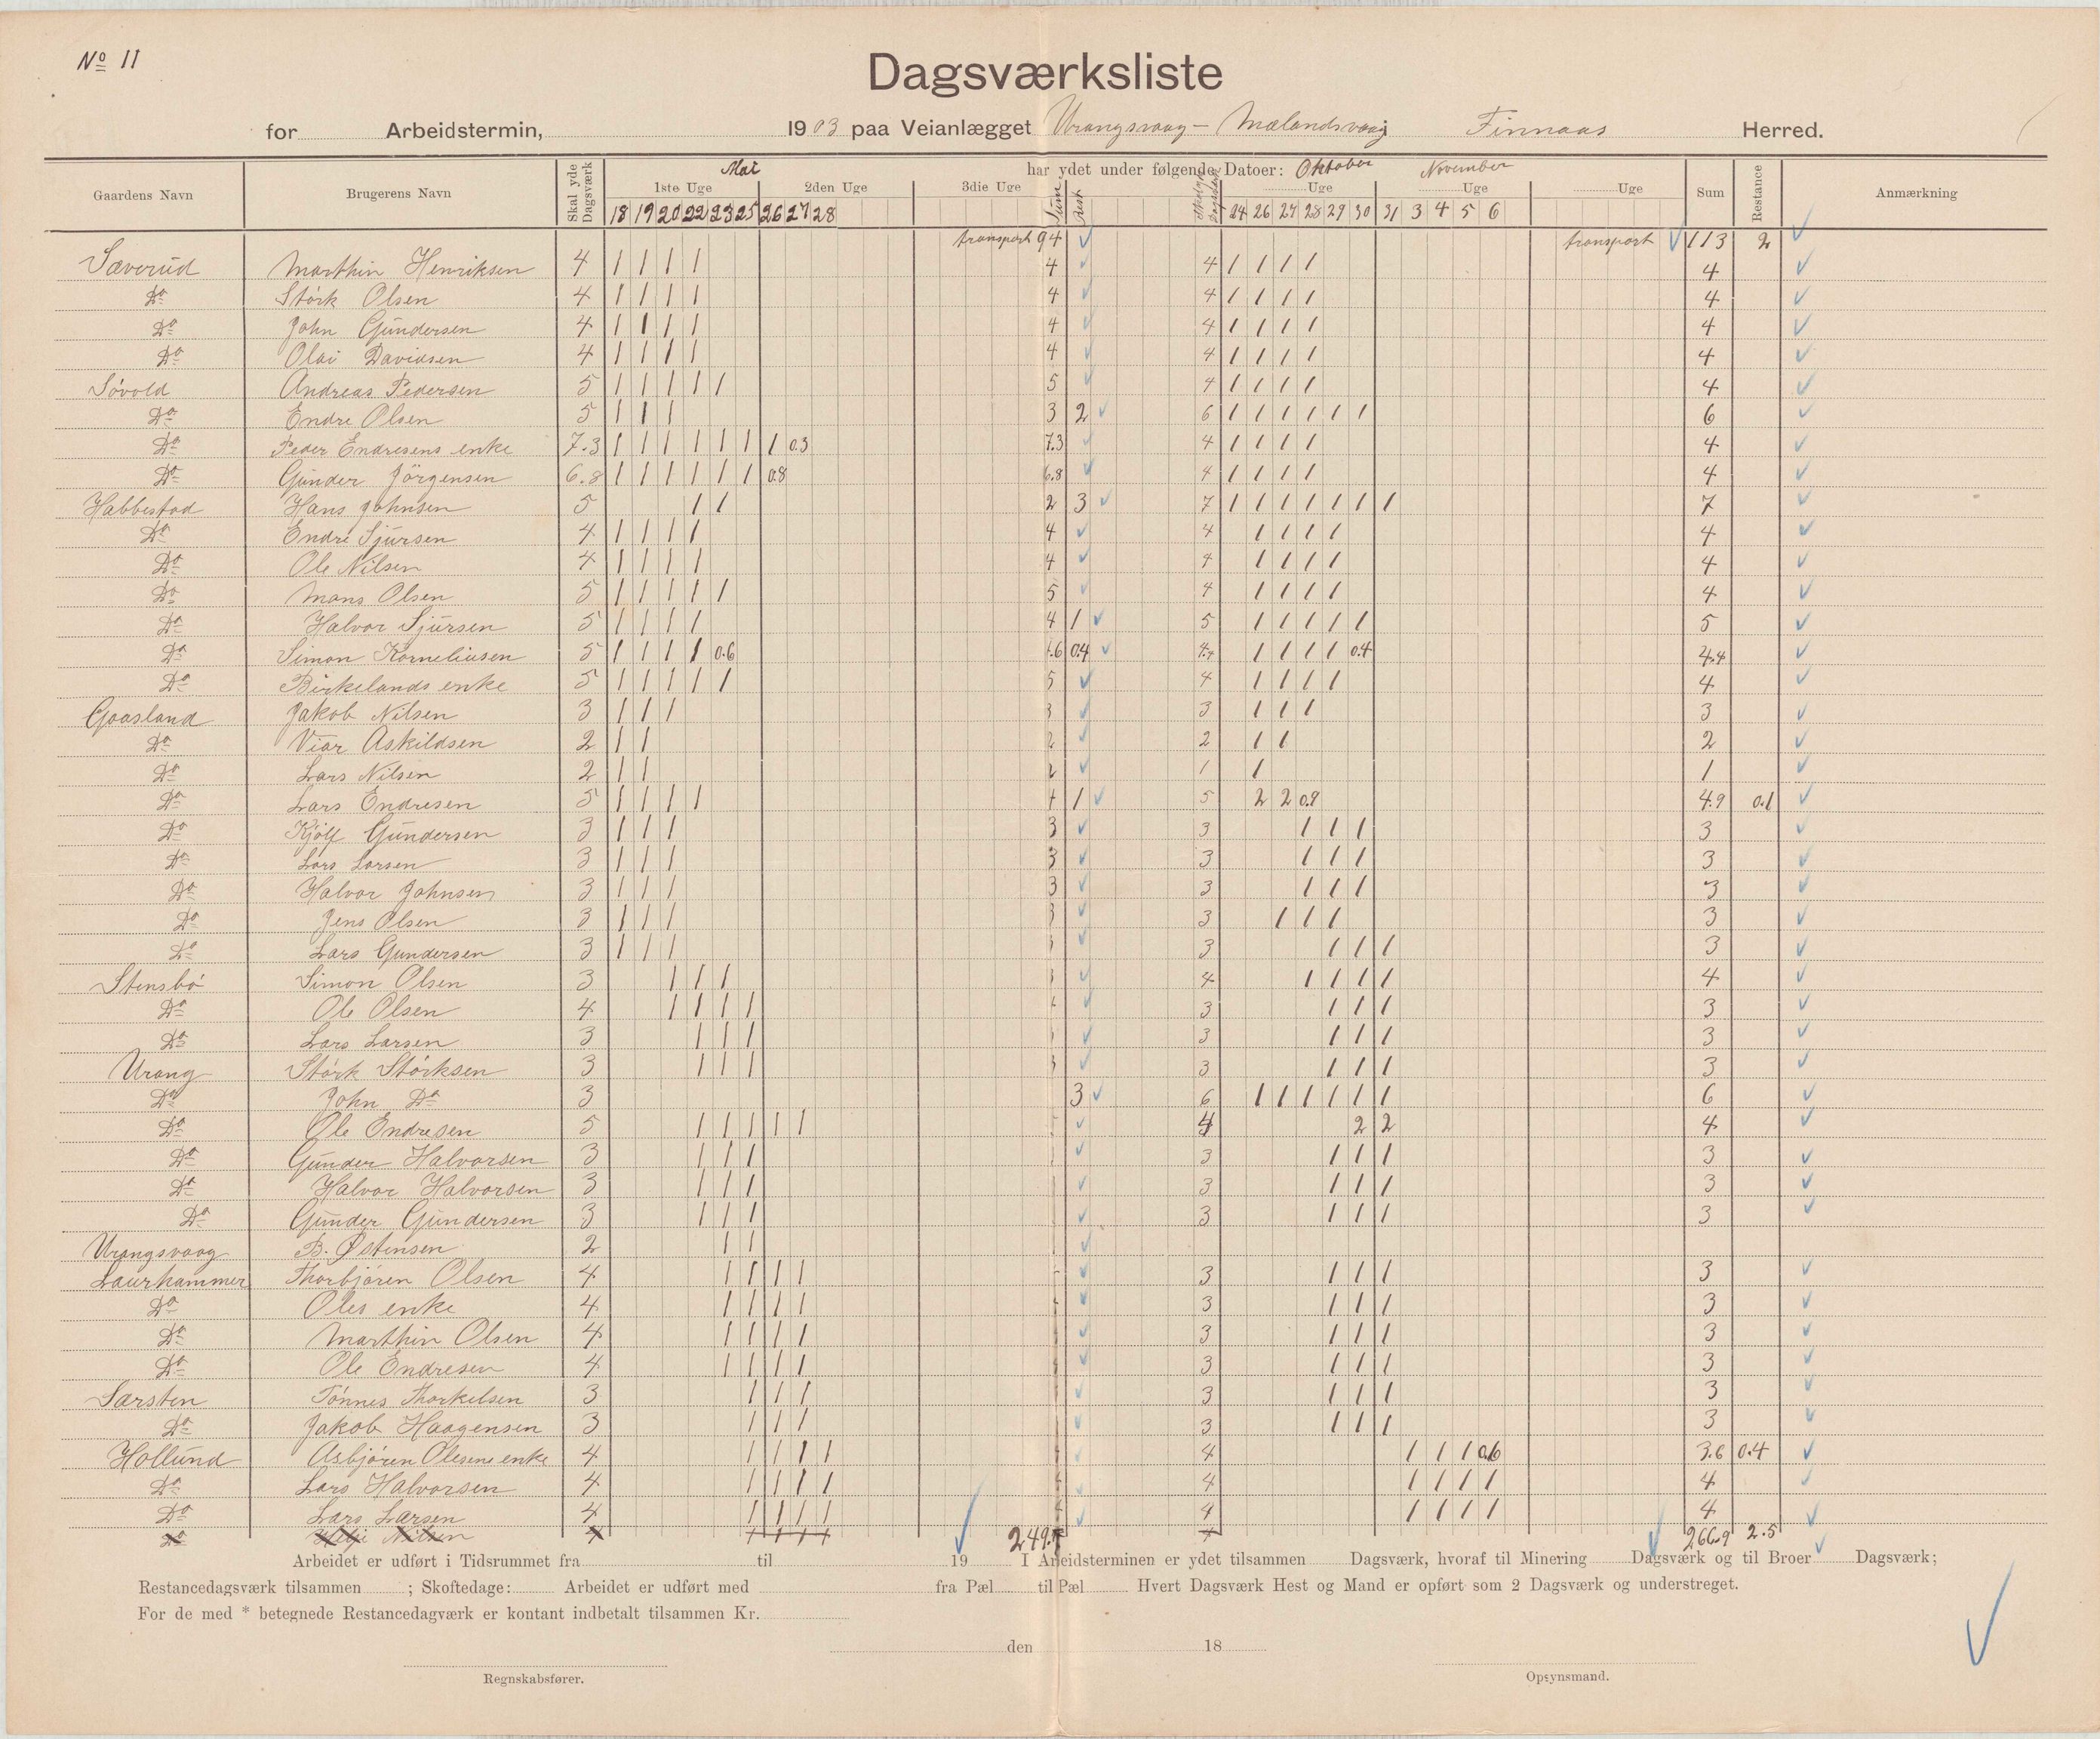 Nº 11
Dagsværksliste
for Arbeidstermin, 1903 paa Veianlægget Urangsvaag - Mælandsvaag Finnaas Herred.
Gaardens Navn Brugerens Navn Skal yde Dagsværk Mai har ydet under følgende Datoer: Oktober November Sum Restance Anmærkning
1ste Uge 2den Uge 3die Uge Sum Rest Skal yde Dagsværk Uge Uge Uge
18 19 20 22 23 25 26 27 28 24 26 27 28 29 30 31 3 4 5 6
transport 94 transport 113 2
Sæverud Marthin Henriksen 4 1 1 1 1 4 4 1 1 1 1 4
Do Störk Olsen 4 1 1 1 1 4 4 1 1 1 1 4
Do John Gundersen 4 1 1 1 1 4 4 1 1 1 1 4
Do Olai Davidsen 4 1 1 1 1 4 4 1 1 1 1 4
Sövold Andreas Pedersen 5 1 1 1 1 1 5 4 1 1 1 1 4
Do Endre Olsen 5 1 1 1 3 2 6 1 1 1 1 1 1 6
Do Peder Endresens enke 7.3 1 1 1 1 1 1 1 0.3 7.3 4 1 1 1 1 4
Do Gunder Jörgensen 6.8 1 1 1 1 1 1 0.8 6.8 4 1 1 1 1 4
Habbestad Hans Johnsen 5 1 1 2 3 7 1 1 1 1 1 1 1 7
Do Endre Sjursen 4 1 1 1 1 4 4 1 1 1 1 4
Do Ole Nilsen 4 1 1 1 1 4 4 1 1 1 1 4
Do Mons Olsen 5 1 1 1 1 1 5 4 1 1 1 1 4
Do Halvor Sjursen 5 1 1 1 1 4 1 5 1 1 1 1 1 5
Do Simon Korneliusen 5 1 1 1 1 0.6 4.6 0.4 4.4 1 1 1 1 0.4 4.4
Do Birkelands enke 5 1 1 1 1 1 5 4 1 1 1 1 4
Gaasland Jakob Nilsen 3 1 1 1 3 3 1 1 1 3
Do Viar Askildsen 2 1 1 2 2 1 1 2
Do Lars Nilsen 2 1 1 2 1 1 1
Do Lars Endresen 5 1 1 1 1 4 1 5 2 2 0.9 4.9 0.1
Do Kjölf Gundersen 3 1 1 1 3 3 1 1 1 3
Do Lars Larsen 3 1 1 1 3 3 1 1 1 3
Do Halvor Johnsen 3 1 1 1 3 3 1 1 1 3
Do Jens Olsen 3 1 1 1 3 3 1 1 1 3
Do Lars Gundersen 3 1 1 1 3 3 1 1 1 3
Stensbö Simon Olsen 3 1 1 1 3 4 1 1 1 1 4
Do Ole Olsen 4 1 1 1 1 4 3 1 1 1 3
Do Lars Larsen 3 1 1 1 3 1 1 1 3
Urang Störk Störksen 3 1 1 1 3 3 1 1 1 3
Do John Do 3 3 6 1 1 1 1 1 1 6
Do Ole Endresen 5 1 1 1 1 1 4 2 2 4
Do Gunder Halvorsen 3 1 1 1 3 1 1 1 3
Do Halvor Halvorsen 3 1 1 1 3 1 1 1 3
Do Gunder Gundersen 3 1 1 1 3 1 1 1 3
Urangsvaag B. Østensen 2 1 1
Laurhammer Thorbjören Olsen 4 1 1 1 1 3 1 1 1 3
Do Oles enke 4 1 1 1 1 3 1 1 1 3
Do Marthin Olsen 4 1 1 1 1 3 1 1 1 3
Do Ole Endresen 4 1 1 1 1 3 1 1 1 3
Sarsten Tönnes Thorkelsen 3 1 1 1 3 1 1 1 3
Do Jakob Haagensen 3 1 1 1 3 1 1 1 3
Hollund Asbjören Olesens enke 4 1 1 1 1 4 1 1 1 0.6 3.6 0.4
Do Lars Halvorsen 4 1 1 1 1 4 1 1 1 1 4
Do Lars Larsen 4 1 1 1 1 4 1 1 1 1 4
Do Nilsen 4 1 1 1 1 249. 266.9 2.5
Arbeidet er udført i Tidsrummet fra til 19 I Arbeidsterminen er ydet tilsammen Dagsværk, hvoraf til Minering Dagsværk og til Broer Dagsværk;
Restancedagsværk tilsammen ; Skoftedage: Arbeidet er udført med fra Pæl til Pæl Hvert Dagsværk Hest og Mand er opført som 2 Dagsværk og understreget.
For de med * betegnede Restancedagværk er kontant indbetalt tilsammen Kr.
den 18
Regnskabsfører. Opsynsmand.